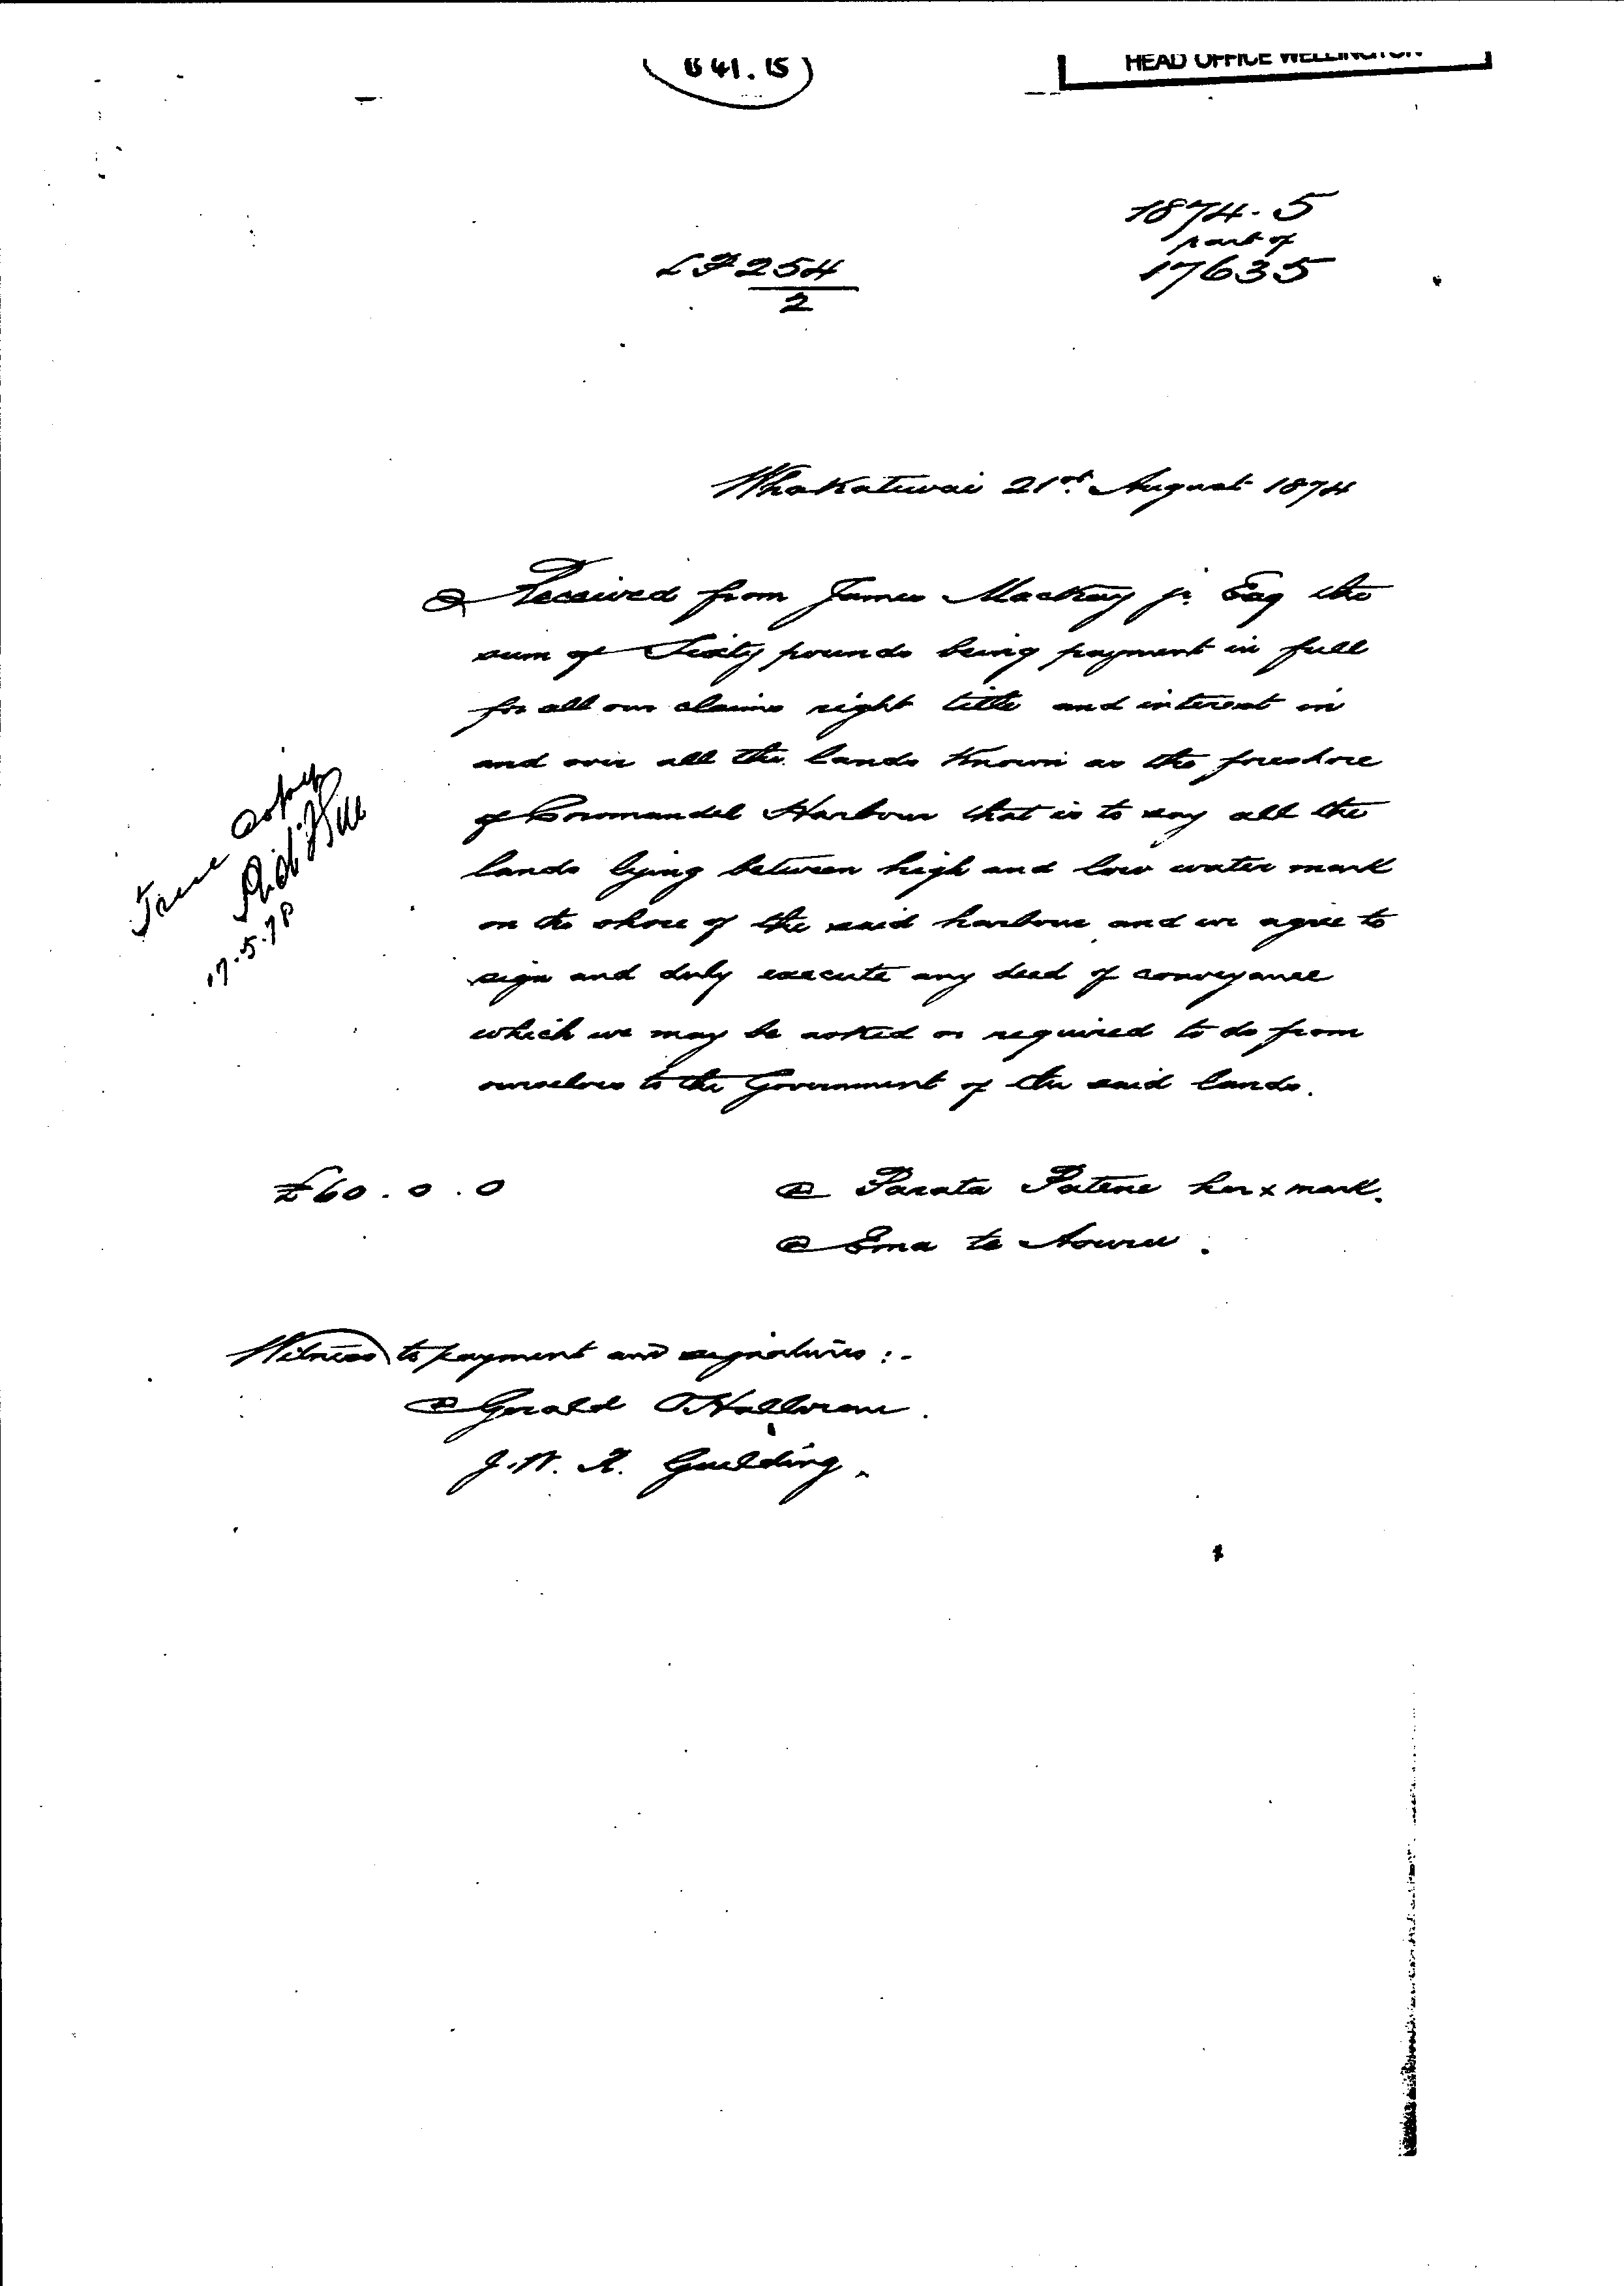 U 41.15
HEAD OFFICE WELLINGTON
1874.5
part of
17635
254
2
Whakatiwai 21st August 1874
Received from James Mackay jr. Esq the
sum of Sixty pounds being payment in full
for all our claims right title and interest in
and over all the lands known as the foreshore
of Coromandel Harbour that is to say all the
lands lying between high and low water mark
on the shore of the said harbour and we agree to
sign and duly execute any deed of conveyance
which we may be asked or required to do from
ourselves to the Government of the said lands.
True Copy
17.5.78
£60.0.0
Parata Patene her x mark.
Ema te
Witness to payment and signatures :-
Gerald O'Halloran.
Guilding.